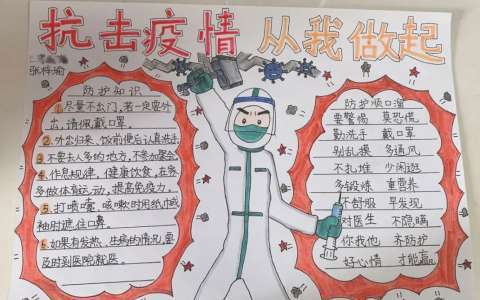 抗击疫情 从我做起
张梓瑜
防护知识
1.尽量不出门,若一定要外
出,请佩戴口罩。
2.外出归来、饭前便后认真洗手。
3.不要去人多的地方,不参加聚会。
4.作息规律,健康饮食,在家
多做体育运动,提高免疫力。
5.打喷嚏、咳嗽时用纸巾或
袖肘遮住口鼻。
6.如果有发热、生病的情况,要
及时到医院就医。
防护顺口溜
要警惕 莫恐慌
勤洗手 戴口罩
别乱摸 多通风
不扎堆 少闲逛
多锻炼 重营养
不舒服 早发现
对医生 不隐瞒
你我他 齐防护
好心情 才能赢